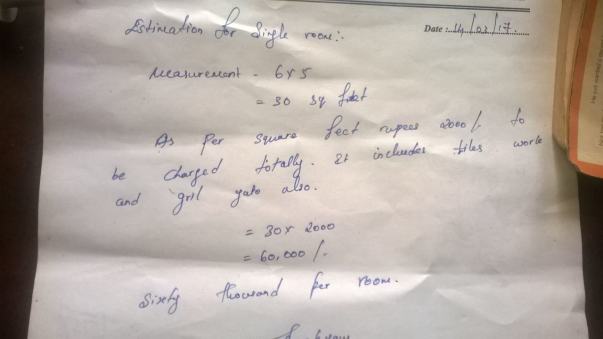 Date : 14/02/17.
Estimation for Single room:-
Measurement - 6x5
= 30 sq feet
As per square feet rupees 2000/. to
be charged totally. It includes tiles work
and gril gate also.
= 30x 2000
= 60,000/.
Sixty thousand per room.